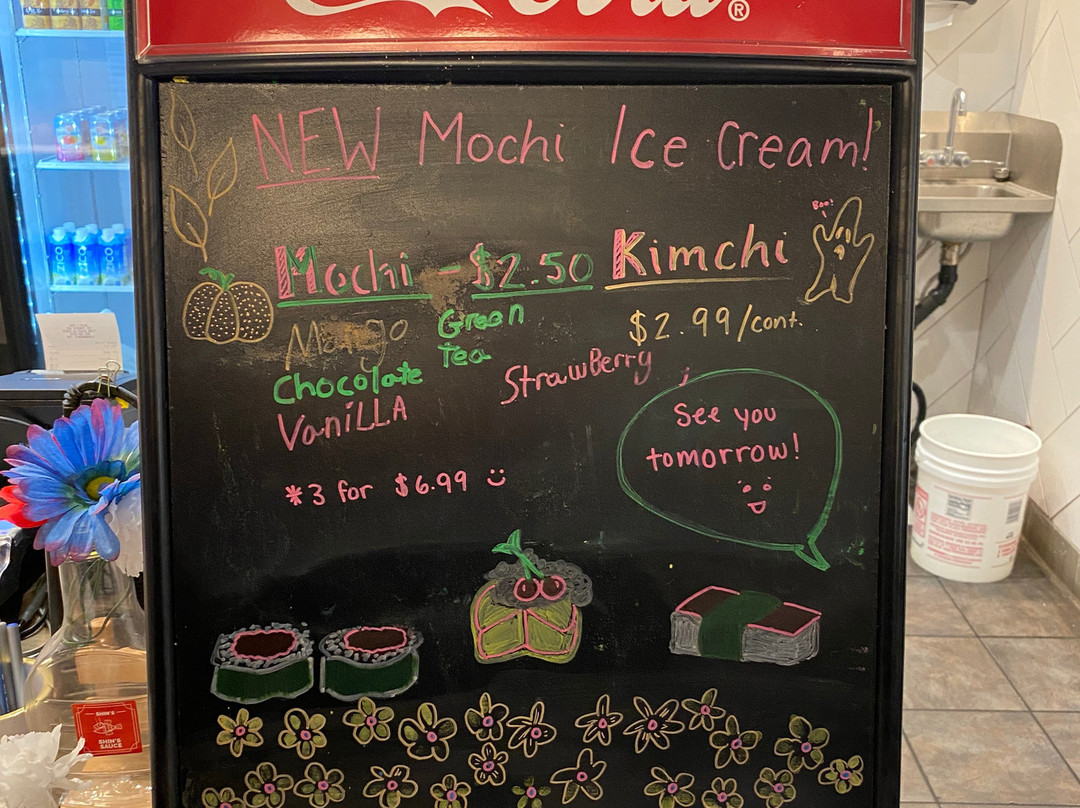 NEW Mochi Ice Cream!
Boo!
Mochi - $2.50
Mango
Green
Tea
Chocolate
Strawberry
VaniLLA
*3 for $6.99
Kimchi
$2.99/cont.
See you
tomorrow!
ZICO
ZICO
ZICO
SHIN'S
SHIN'S
SAUCE